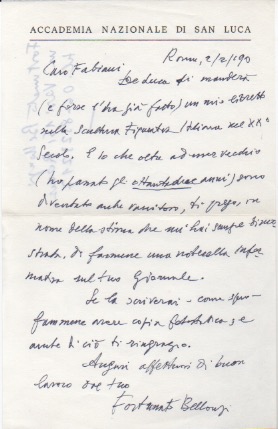 ACCADEMIA NAZIONALE DI SAN LUCA
Roma, 2/2/190
Caro Fabiani
De Luca ti manderà
(e forse l'ha già fatto) un mio libretto
sulla Scultura Figurativa Italiana nel XX°
Secolo. E io che oltre ad essere vecchio
(ho passato gli ottantadue anni) sono
diventato anche vanitoso, ti prego, in
nome della stima che mi hai sempre dimo
strata, di farmene una notarella infor
mativa sul tuo Giornale.
Se la scriverai - come spero
fammene avere copia fotostatica, e
anche di ciò ti ringrazio.
Auguri affettuosi di buon
lavoro dal tuo
Fortunato Bellonzi